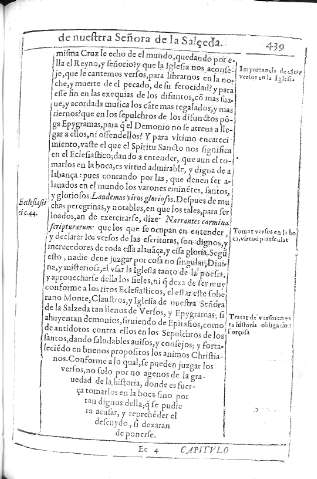 de nuestra Señora de la Salçeda.
439
misma Cruz le echo de el mundo, quedando por e-
lla el Reyno, y señorio? y que la Iglesia nos aconse-
je, que le cantemos versos, para librarnos en la no-
che, y muerte de el pecado, de su ferocidad? y para
esse fin en las exequias de los difuntos, cõ mas sua-
ue, y acordada musica los cãte mas regalados, y mas
tiernos? que en los sepulchros de los difunctos põ-
ga Epygramas, para q̃ el Demonio no se atreua a lle-
gar a ellos, ni offendellos? Y para vltimo encareci-
miento, vaste el que el Spiritu Sancto nos significa
en el Ecclesiastico, dando a entender, que aun el to-
marlos en la boca, es virtud admirable, y digna de a
labança: pues contando por las, que deuen ser a-
labados en el mundo los varones eminẽtes, santos,
y gloriosos. Laudemus viros gloriosos. Despues de mu-
chas peregrinas, y notables, en que los tales, para ser
loados, an de exercitarse, dize Narrantes carmina
scripturarum: que los que se ocupan en entender,
y declarar los versos de las escrituras, son dignos, y
merecedores de toda essa alauãça, y essa gloria. Segũ
esto, nadie deue juzgar por cosa no singular, Diui-
na, y misteriosa, el vsar la Iglesia tanto de la poesia,
y aprouecharse della los fieles, ni q̃ dexa de ser muy
conforme a los ritos Ecclesiasticos, el estar este sobe-
rano Monte, Claustros, y Iglesia de nuestra Señora
de la Salzeda tan llenos de Versos, y Epygramas, q̃
ahuyentan demonios, siruiendo de Epitafios, como
de antidotos contra ellos en los Sepulchros de los
santos, dando saludables auisos, y consejos; y forta-
leciẽdo en buenos propositos los animos Christia-
nos. Conforme a lo qual, se pueden juzgar los
versos, no solo por no agenos de la gra-
uedad de la historia, donde es fuer-
ça tomarlos en la boca sino por
tan dignos della, q̃ se pudie
ra acusar, y reprehẽder el
descuydo, si dexaran
de ponerse.
Ee 4 CAPITVLO
Importancia de
versos en la Iglesia
Ecclesiasti
44.
Tomar versos en la bo
ca, virtud
Tratar de versos en
ta historia obligacion
forçosa